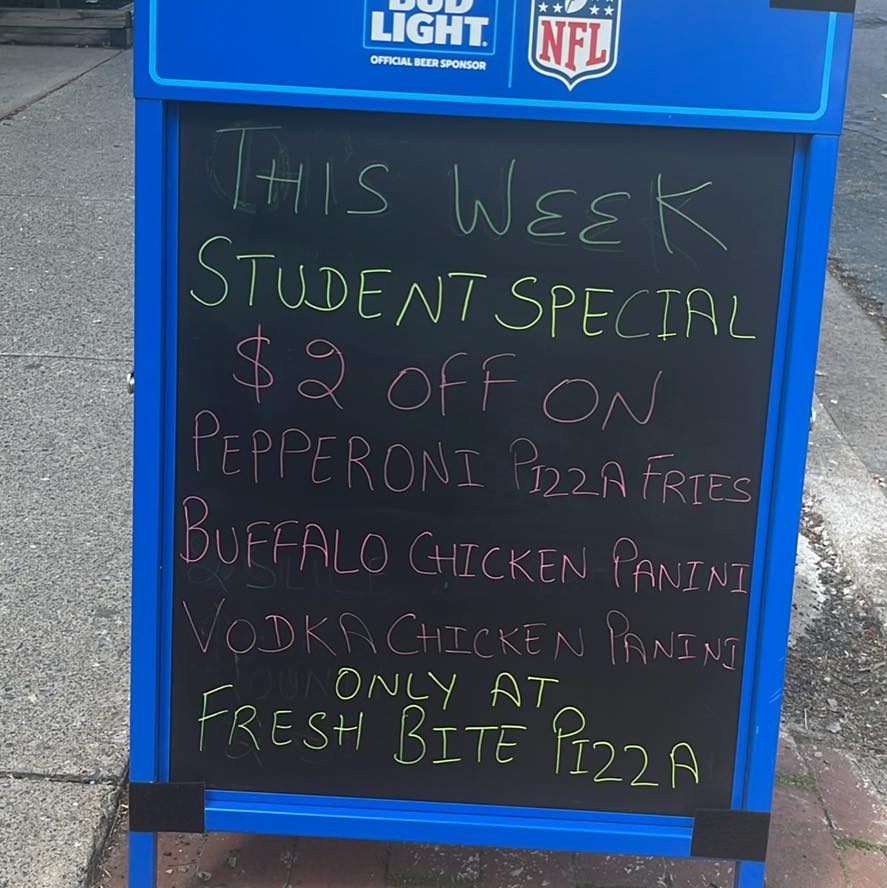 BUD
LIGHT.
OFFICIAL BEER SPONSOR
NFL
THIS WEEK
STUDENT SPECIAL
$2 OFF ON
PEPPERONI PIZZA FRIES
BUFFALO CHICKEN PANINI
VODKA CHICKEN PANINI
ONLY AT
FRESH BITE PIZZA